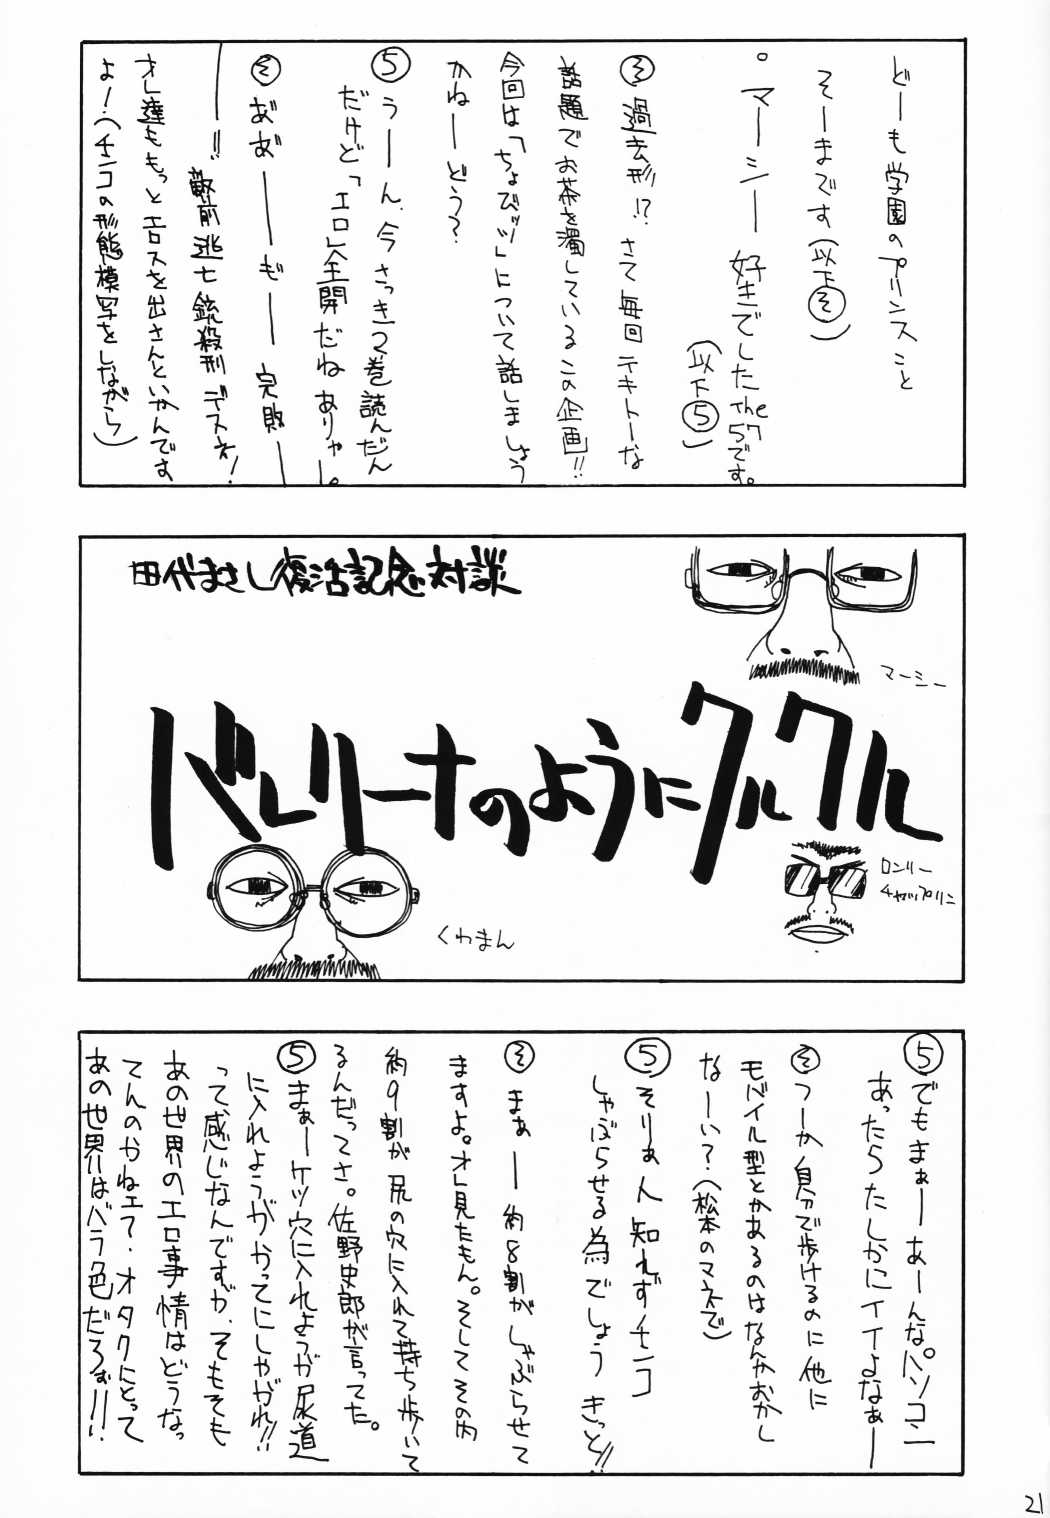 どーも学園のプリンスこと
そーまです(以下そ)
。マーシー好きでしたthe57です。
(以下5)
そ 過去形!?さて毎回テキトーな
話題でお茶を濁しているこの企画!!
今回は「ちょびッツ」について話しましょう
かねーどう?
5 うーん、今さっき2巻読んだん
だけど「エロ」全開だねありゃ。
そ あ゛あ゛ーーぎーー完敗ー
ー!!敵前逃亡銃殺刑デスネ!
オレ達ももっとエロスを出さんといかんです
よ!(チンコの形態模写をしながら)
田代まさし復活記念対談
マーシー
バレリーナのようにクルクル
ロンリー
チャップリン
くわまん
5 でもまぁーあーんなパソコン
あったらたしかにイイよなぁー
そ つーか自分で歩けるのに他に
モバイル型とかあるのはなんかおかし
なーい?(松本のマネで)
5 そりぁ人知れずチンコ
しゃぼらせる為でしょうきっと!!
そ まぁー約8割がしゃぶらせて
ますよ。オレ見たもん。そしてその内
約9割が尻の穴に入れて持ち歩いて
るんだってさ。佐野史郎が言ってた。
5 まぁーケツ穴に入れようが尿道
に入れようがかってにしやがれ!!
って感じなんですが、そもそも
あの世界のエロ事情はどうなっ
てんのかねェ?・オタクにとって
あの世界はバラ色だろぉ!!!
21